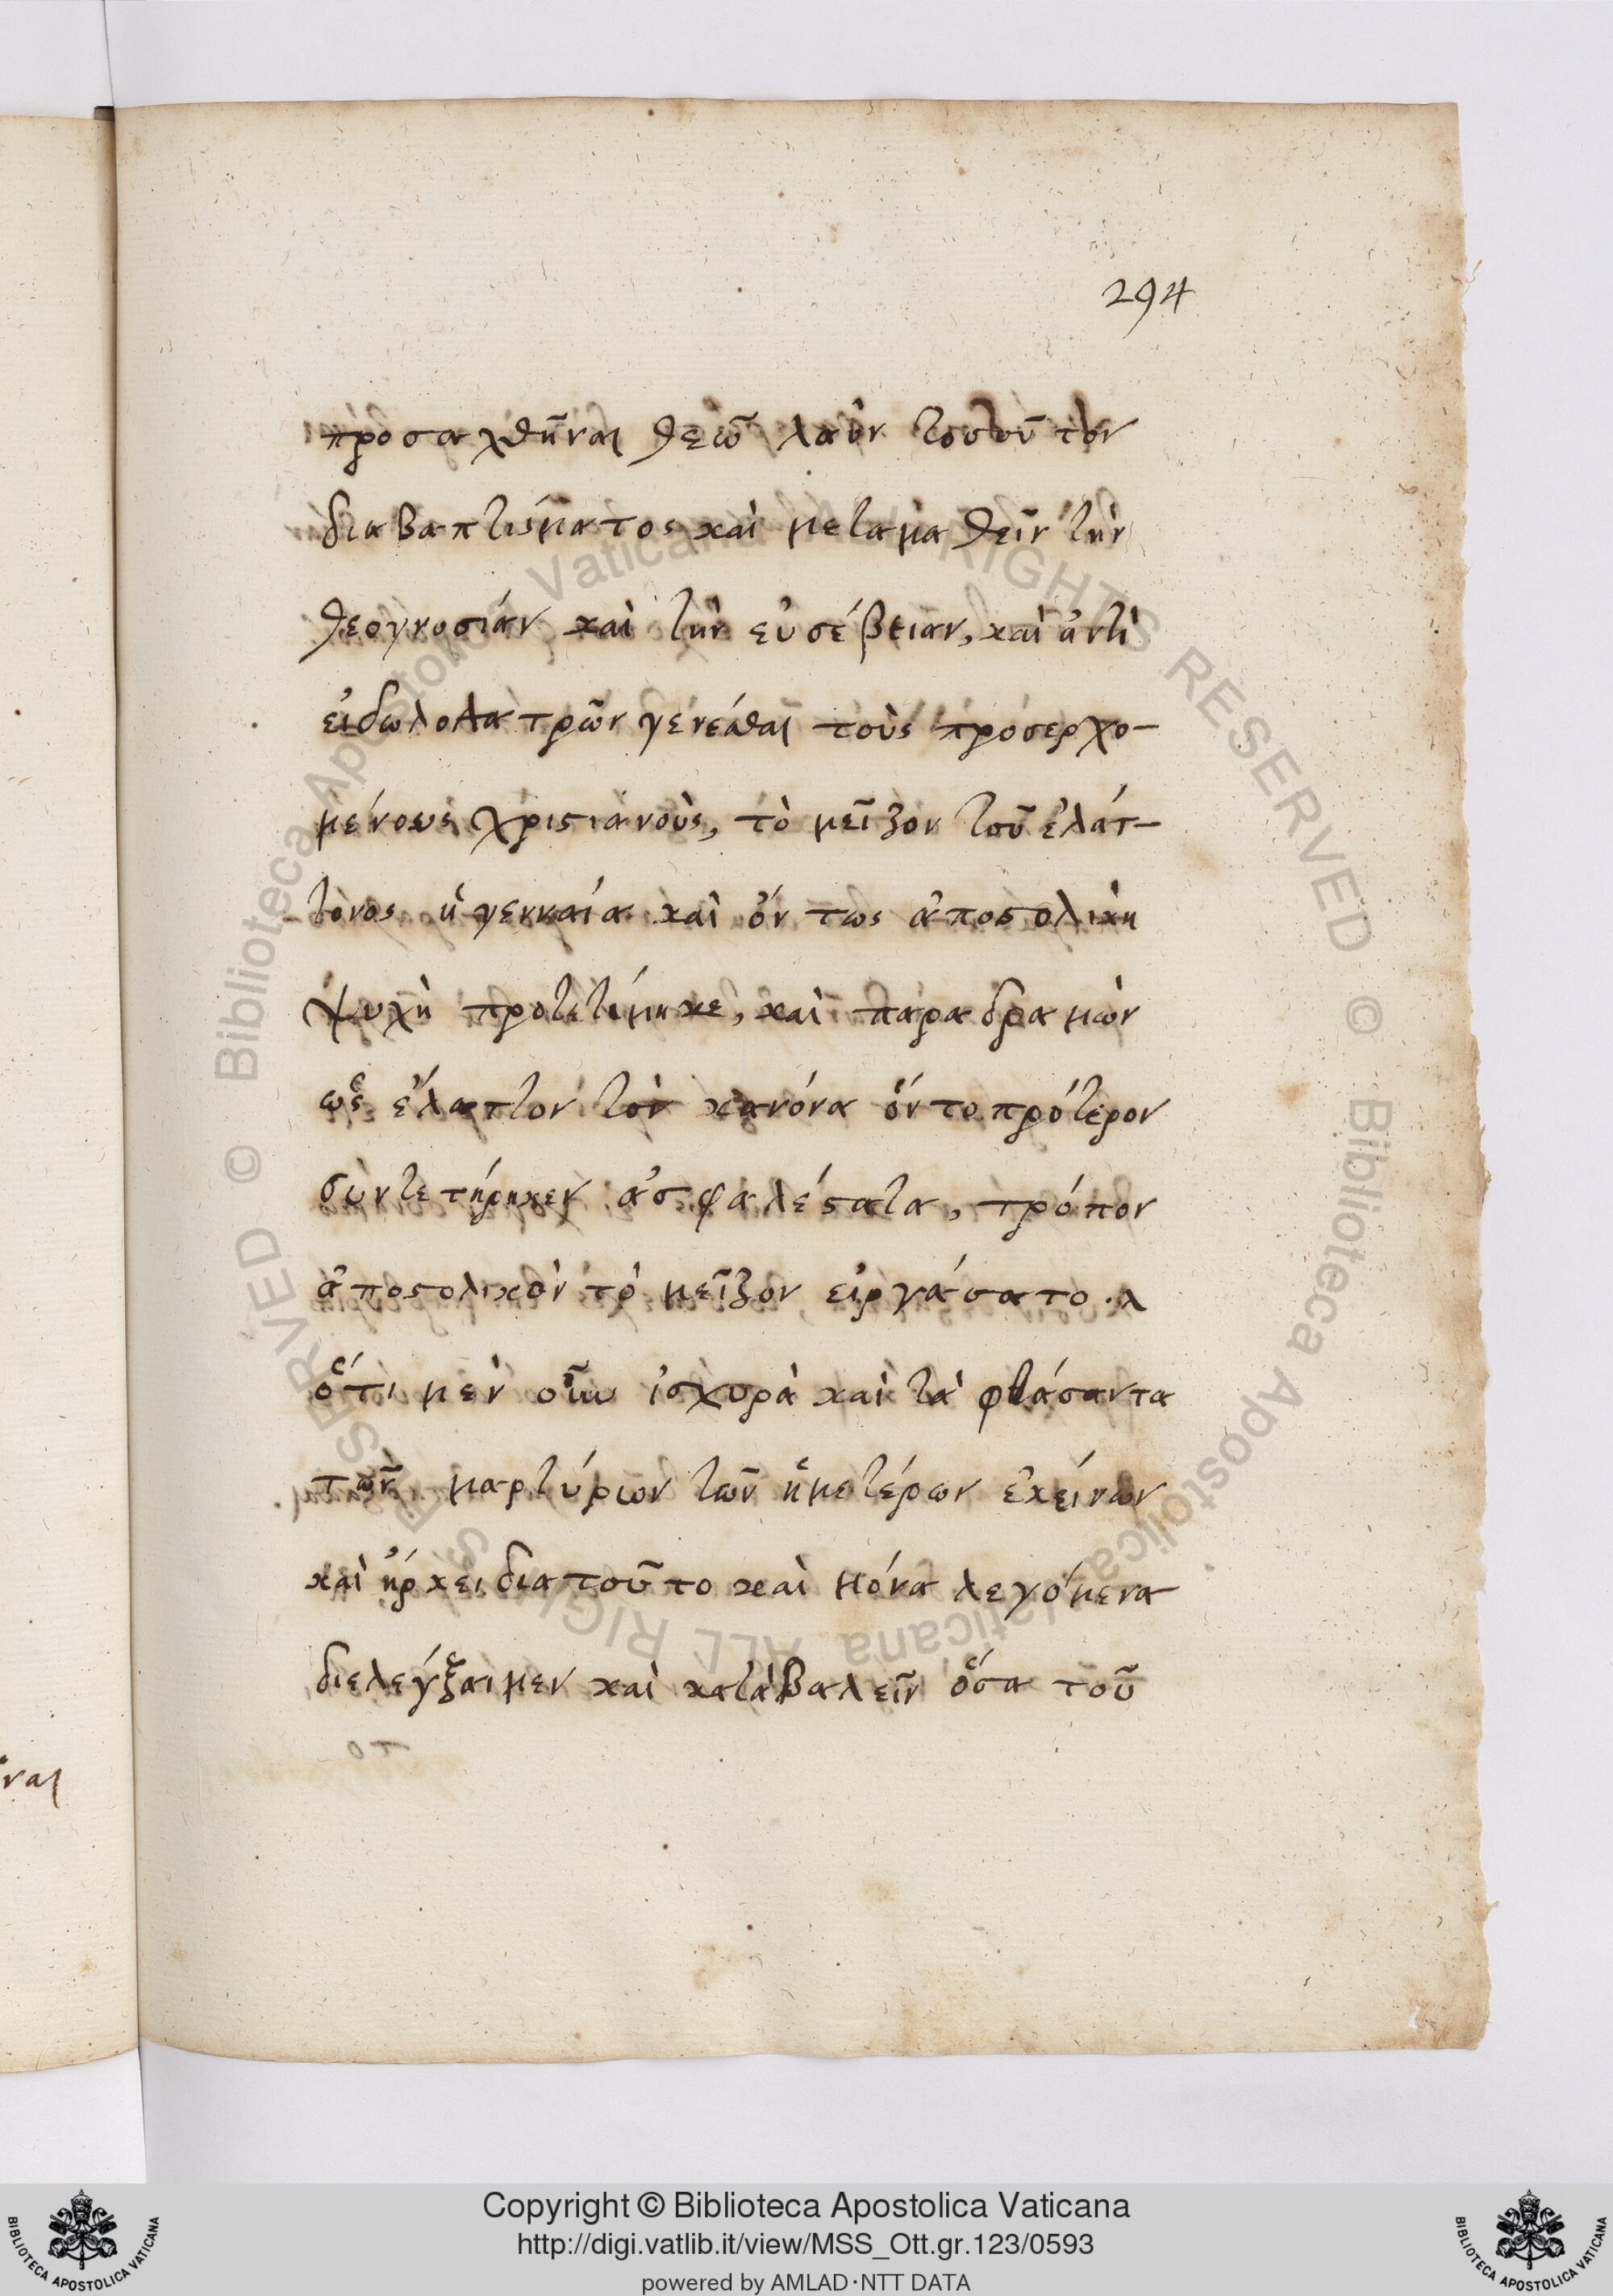 294
προσαχθῆναι θεῶ λαὸν τοσοῦτον
διαβαπτίσματος καὶ μεταμαθεῖν τὴν
θεογνοσιάν καὶ τὴν εὐσέβειαν, καὶ ἀντὶ
εἰδωλολατρῶν γενέσθαι τοὺς προσερχο-
μένους χριστιανοὺς, τὸ μεῖζον τοῦ ἐλάτ-
τονος ἡ γενναία καὶ ὄντως ἀποστολικὴ
ψυχὴ προτετίμηκε, καὶ παραδραμὼν
ὡς ἔλαττον τὸν κανόνα ὅν τοπρότερον
συντετήρηκεν ἀσφαλέστατα, τρόπον
ἀποστολικὸν τὸ μεῖζον εἰργάσατο.
ὅτι μὲν οὖν ἰσχυρὰ καὶ τὰ φθάσαντα
τῶν μαρτύριων τῶν ἡμετέρων ἐκείνων
καὶ ἤρκει διατοῦτο καὶ μόνα λεγόμενα
διελέγξαιμεν καὶ καταβαλεῖν ὅσα τοῦ
ναι
Copyright © Biblioteca Apostolica Vaticana
http://digi.vatlib.it/view/MSS_Ott.gr.123/0593
powered by AMLAD·NTT DATA
BIBLIOTECA APOSTOLICA VATICANA
BIBLIOTECA APOSTOLICA VATICANA
© Biblioteca Apostolica Vaticana ALL RIGHTS RESERVED © Biblioteca Apostolica Vaticana ALL RIGHTS RESERVED